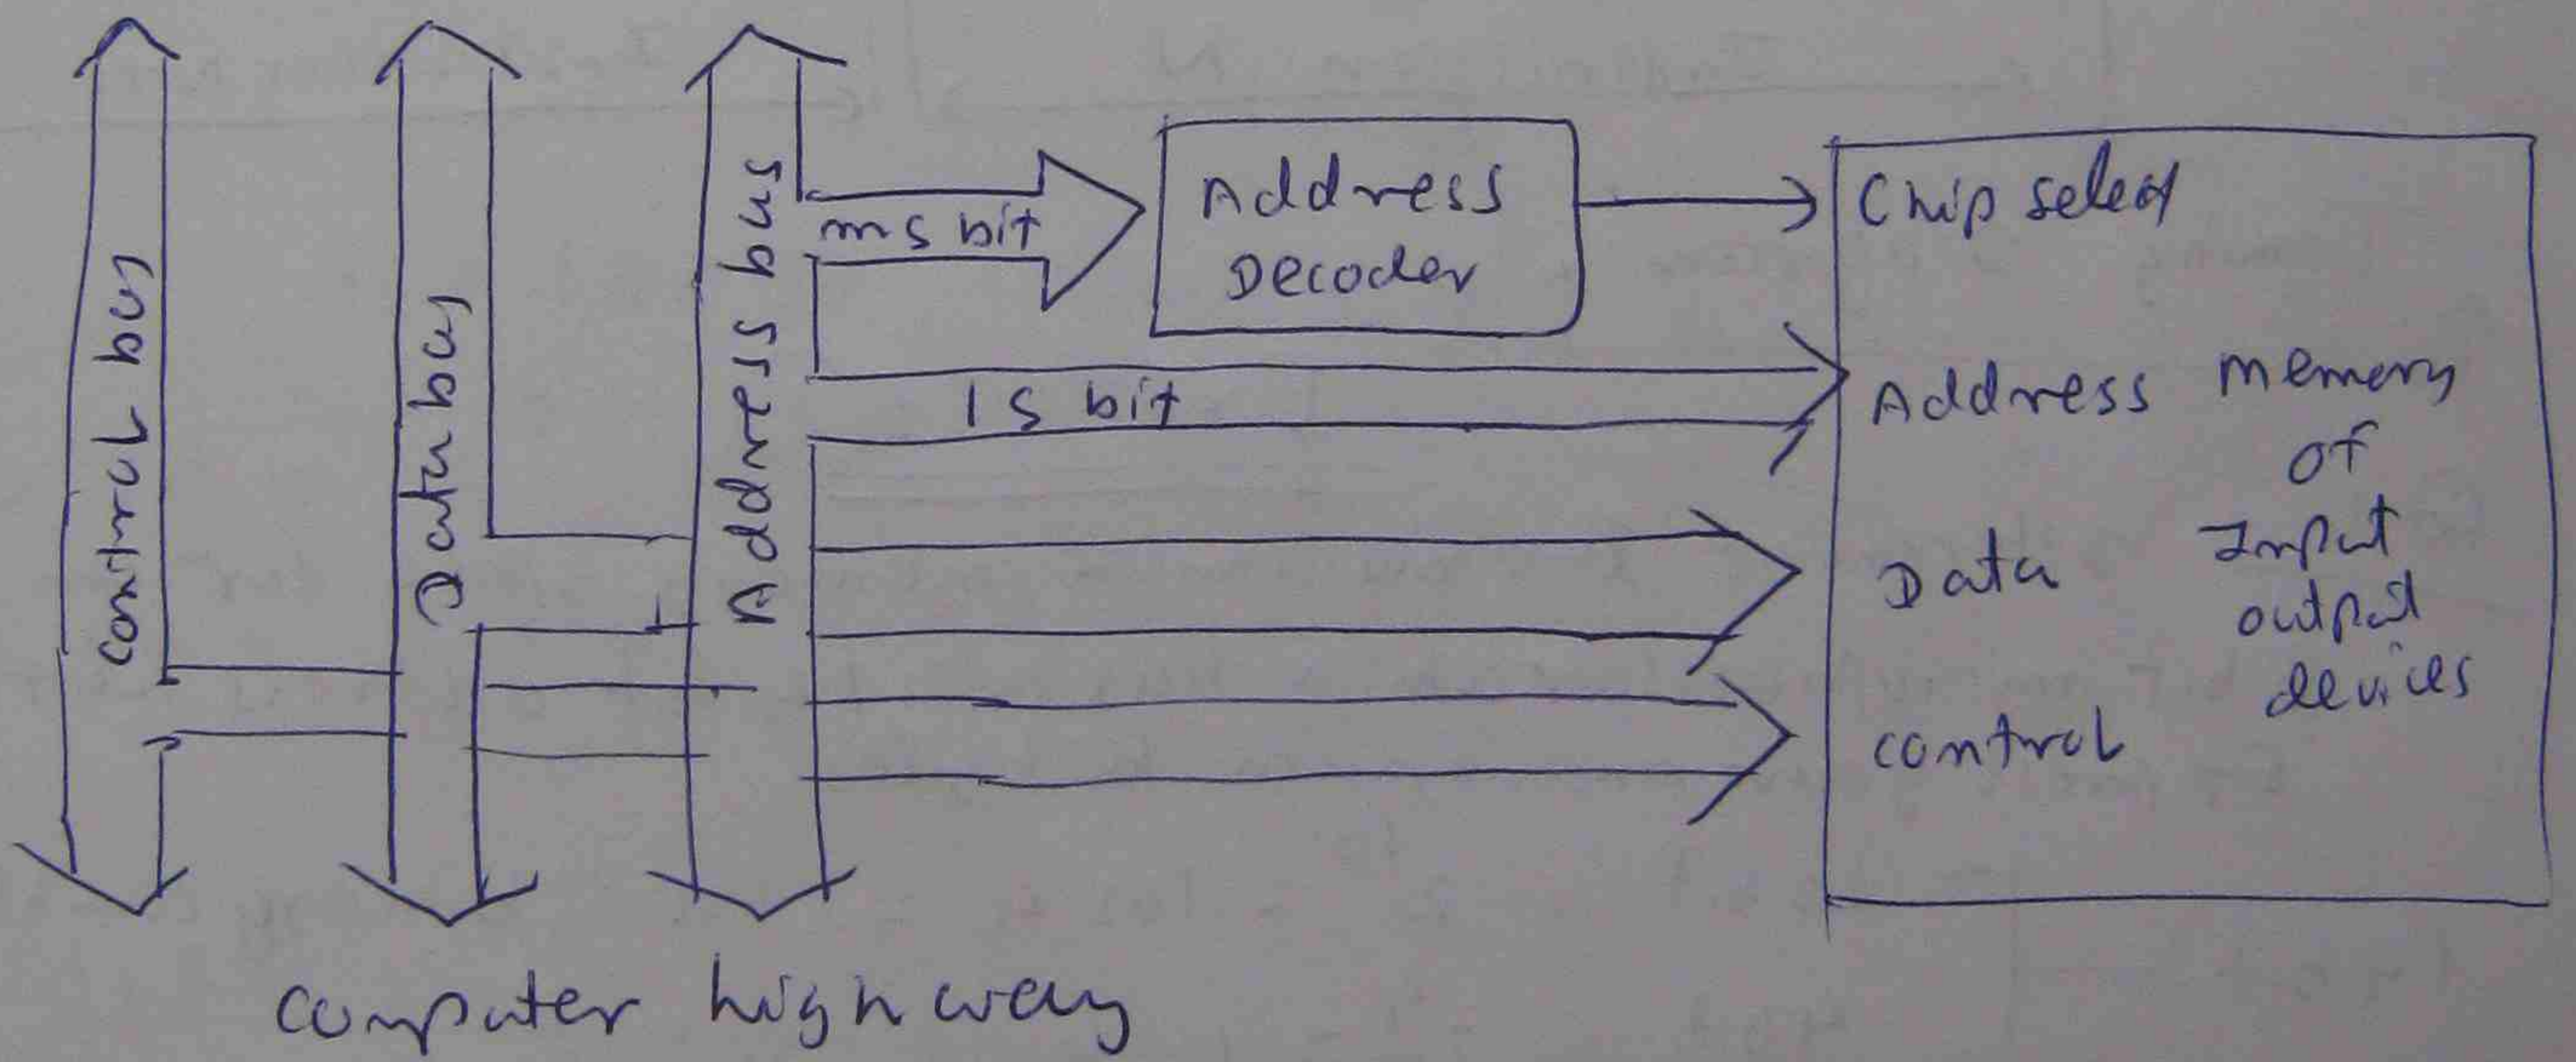 control bus
Data bus
Address bus
ms bit
Address
Decoder
Chip select
ls bit
Address
Data
control
memory
of
Input
output
devices
computer highway